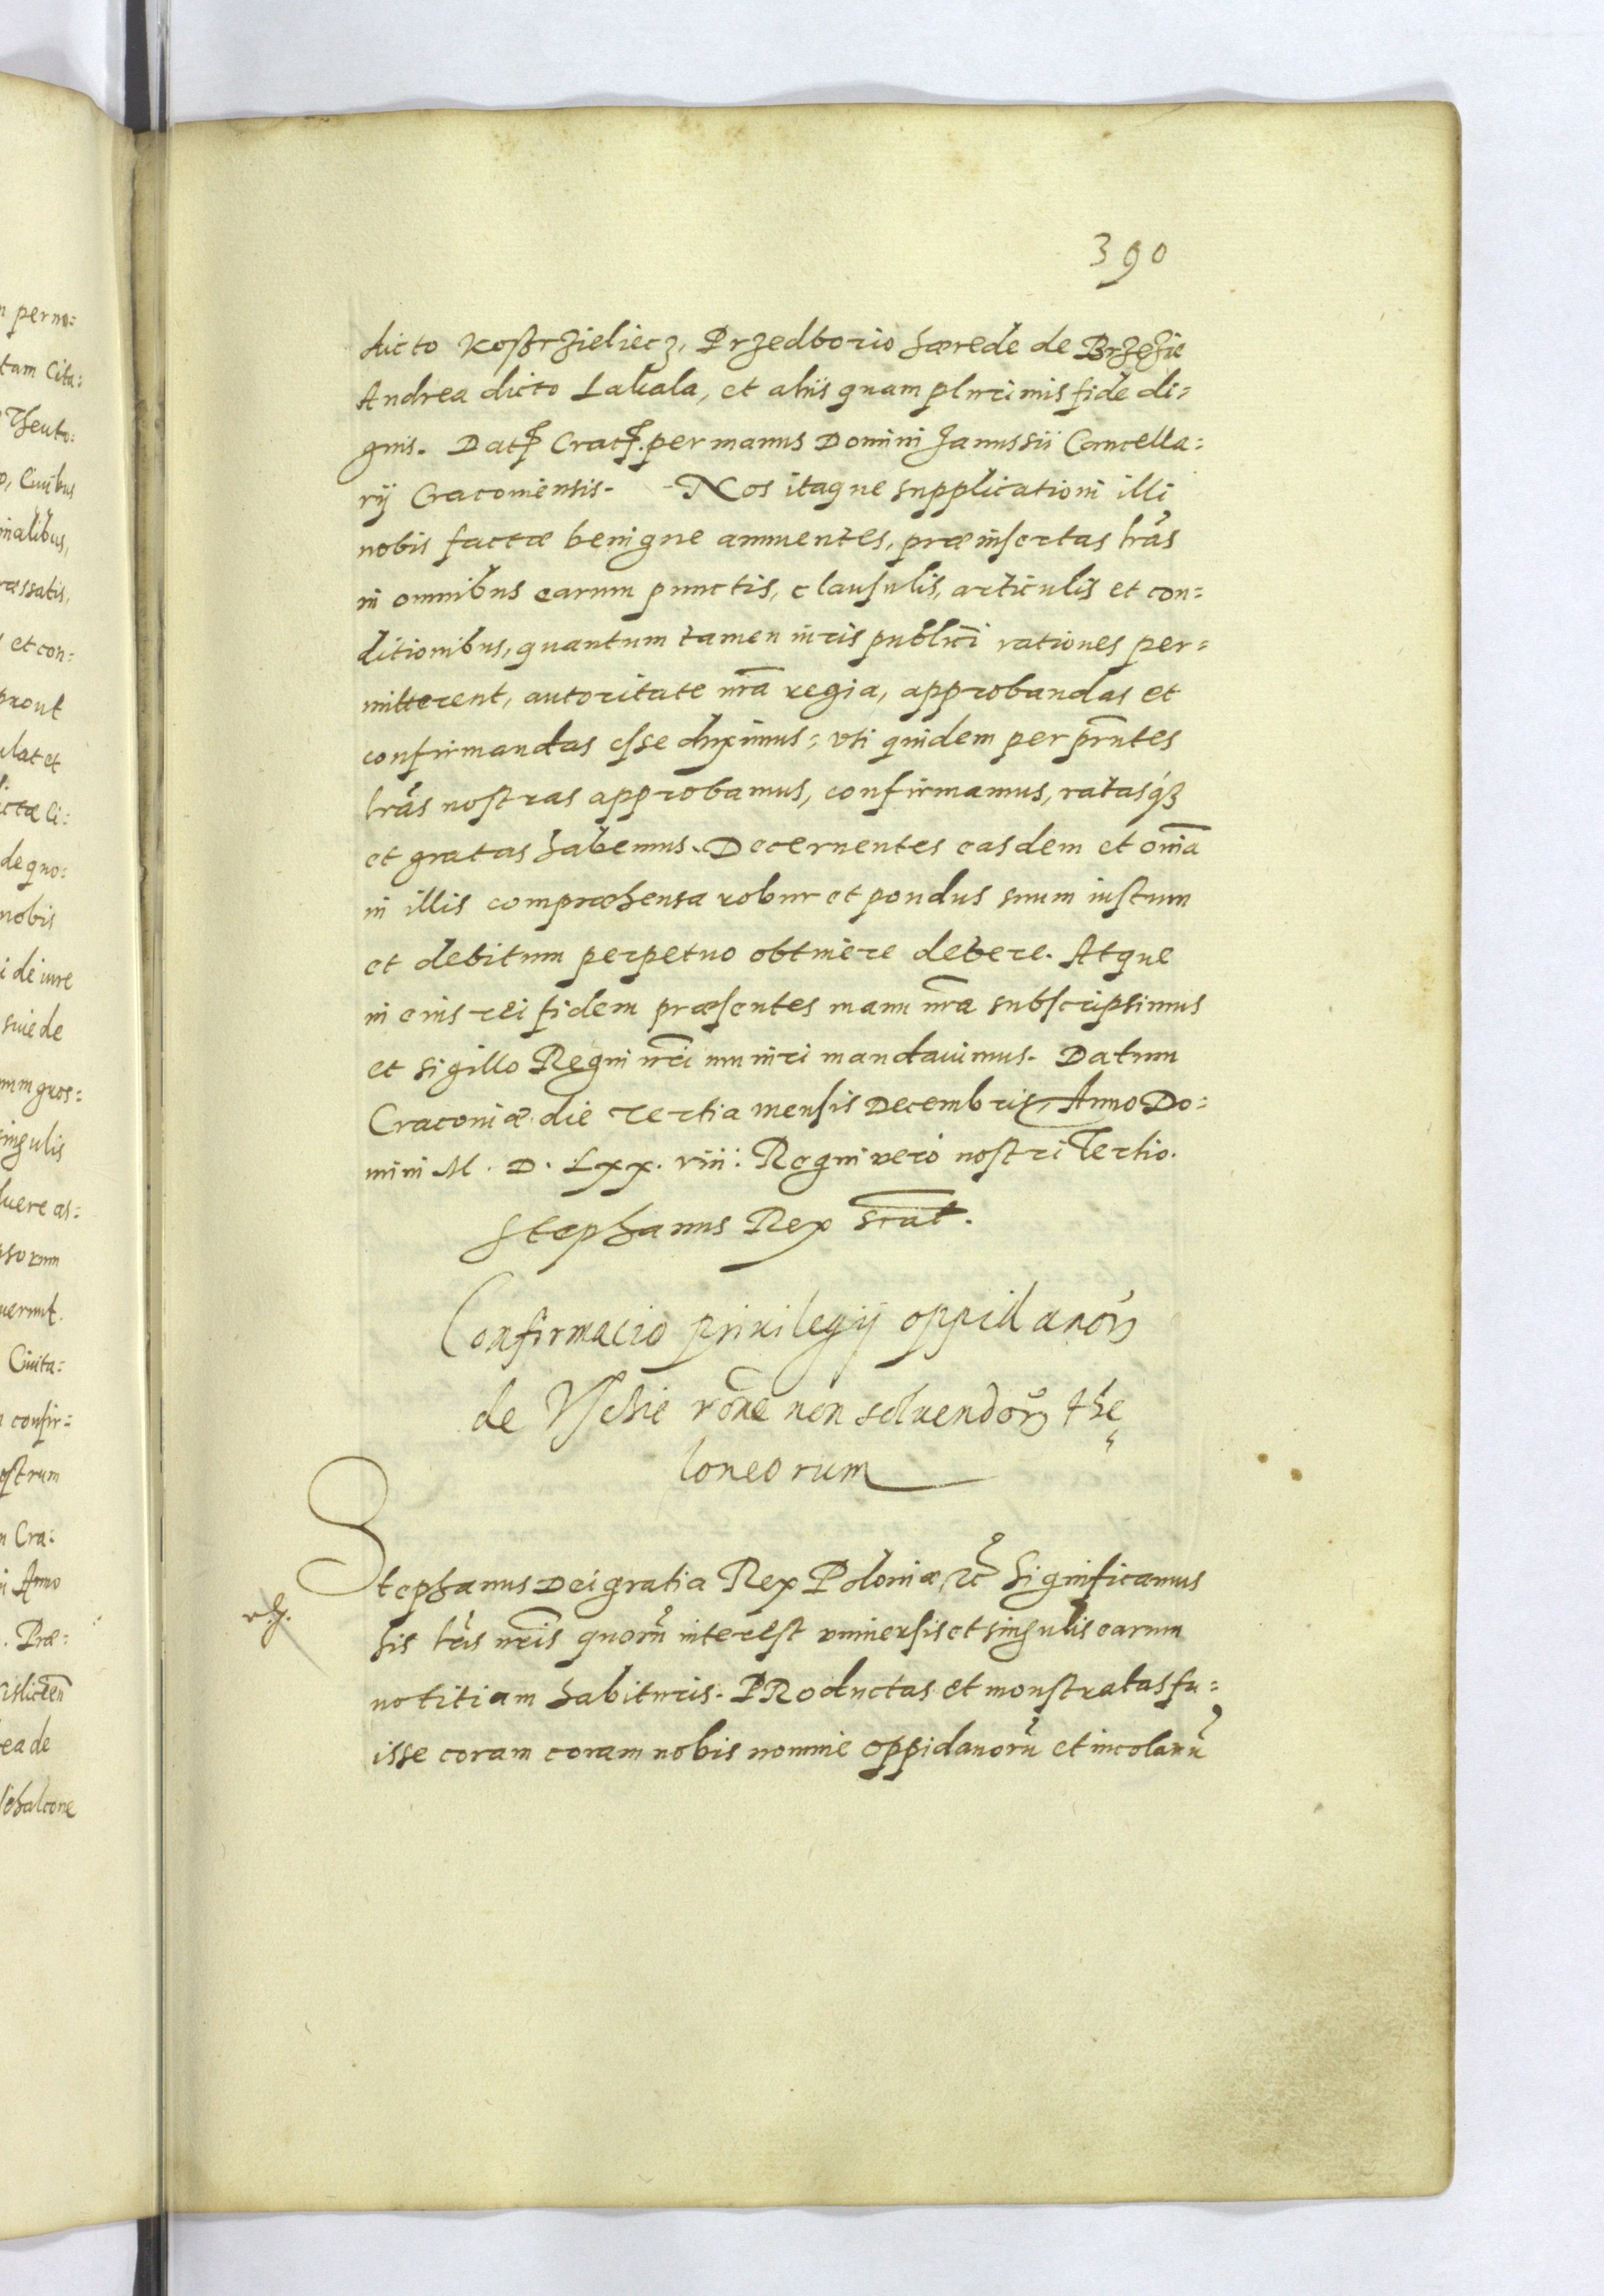 390
dicto Kostrzieliecz, Przedborio hærede de Brzezie
Andrea dicto Lakala, et aliis quam plurimis fide di=
gnis. Datꝭ Cracꝭ. per manus Domini Janussii Cancella=
rij Cracouiensis. Nos itaque supplicationi illi
nobis factæ benigne annuentes, præinsertas lr̃as
in omnibus earum punctis, clausulis, articulis et con=
ditionibus, quantum tamen iuris publici rationes per=
mitterent, autoritate nr̃a regia, approbandas et
confirmandas esse duximus: vti quidem per pr̃ntes
lr̃as nostras approbamus, confirmamus, ratasq́ꝫ
et gratas habemus. Decernentes easdem et om̃ia
in illis compræhensa robur et pondus suum iustum
et debitum perpetuo obtinere debere. Atque
in eius rei fidem præsentes manu nr̃a subscripsimus
et sigillo Regni nr̃i muniri mandauimus. Datum
Cracouiæ die tertia mensis Decembris, Anno Do=
mini M. D. Lxx. viii: Regni vero nostri Tertio.
Stephanus Rex scrat̃.
Confirmacio priuilegij oppidanoꝝ
de Vschie rõne non soluendoꝝ the„
loneorum
Stephanus Dei gratia Rex Poloniæ ꝛc̃ Significamus
his lr̃is nr̃is quorũ interest vniuersis et singulis earum
notitiam habituris. PRoductas et monstratas fu=
isse coram coram nobis nomine oppidanorũ et incolarũ
n perno=
tam Cita=
Theuto=
o, Ciuibus
inalibus,
ræssatis,
et con=
prout
ulat et
ctæ li=
de quo=
nobis
i de iure
suie de
um gros=
singulis
luere as=
psorum
uerunt.
Ciuita=
n confir=
ostrum
n Cra=
i Anno
. Præ=
ea de